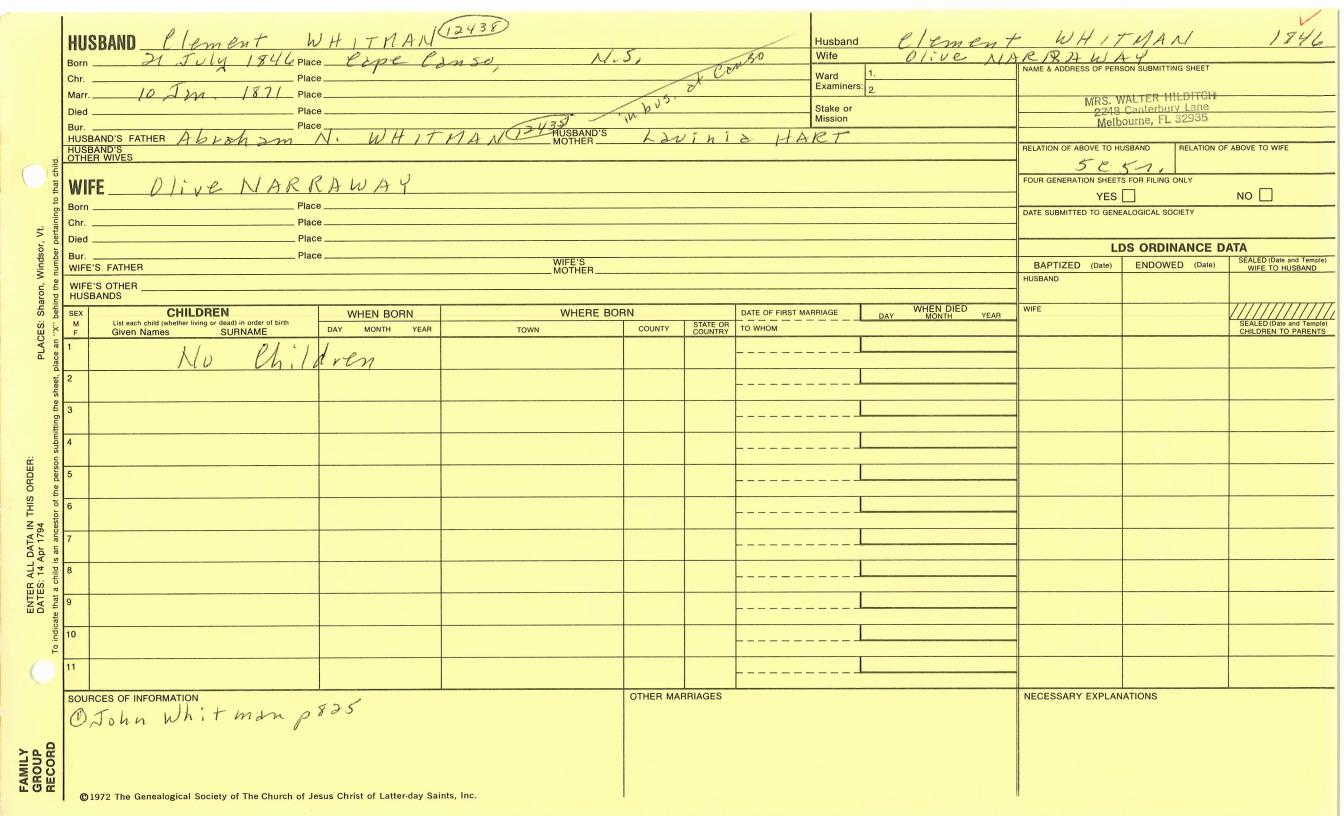 HUSBAND Clement WHITMAN 12438
Born 21 July 1846 Place Cape Canso, N.S.
Chr. Place
Marr. 10 Jan. 1871 Place
in bus. at Canso
Died Place
Bur. Place
HUSBAND'S FATHER Abraham N. WHITMAN 12438 HUSBAND'S MOTHER Lavinia HART
HUSBAND'S OTHER WIVES
WIFE Olive NARRAWAY
Born Place
Chr. Place
Died Place
Bur. Place
WIFE'S FATHER WIFE'S MOTHER
WIFE'S OTHER HUSBANDS
Husband Clement WHITMAN 1846
Wife Olive NARRAWAY
Ward Examiners: 1. 2.
Stake or Mission
NAME & ADDRESS OF PERSON SUBMITTING SHEET
MRS. WALTER HILDITCH
2248 Canterbury Lane
Melbourne, FL 32935
RELATION OF ABOVE TO HUSBAND RELATION OF ABOVE TO WIFE
FOUR GENERATION SHEETS FOR FILING ONLY
YES NO
DATE SUBMITTED TO GENEALOGICAL SOCIETY
LDS ORDINANCE DATA
BAPTIZED (Date) ENDOWED (Date) SEALED (Date and Temple) WIFE TO HUSBAND
HUSBAND
WIFE
SEALED (Date and Temple) CHILDREN TO PARENTS
SEX M F
CHILDREN
List each child (whether living or dead) in order of birth
Given Names SURNAME
WHEN BORN
DAY MONTH YEAR
WHERE BORN
TOWN COUNTY STATE OR COUNTRY
DATE OF FIRST MARRIAGE
TO WHOM
WHEN DIED
DAY MONTH YEAR
1 No Children
2
3
4
5
6
7
8
9
10
11
SOURCES OF INFORMATION
① John Whitman p825
OTHER MARRIAGES
NECESSARY EXPLANATIONS
©1972 The Genealogical Society of The Church of Jesus Christ of Latter-day Saints, Inc.
FAMILY GROUP RECORD
ENTER ALL DATA IN THIS ORDER:
DATES: 14 Apr 1794 PLACES: Sharon, Windsor, Vt.
To indicate that a child is an ancestor of the person submitting the sheet, place an "X" behind the number pertaining to that child.